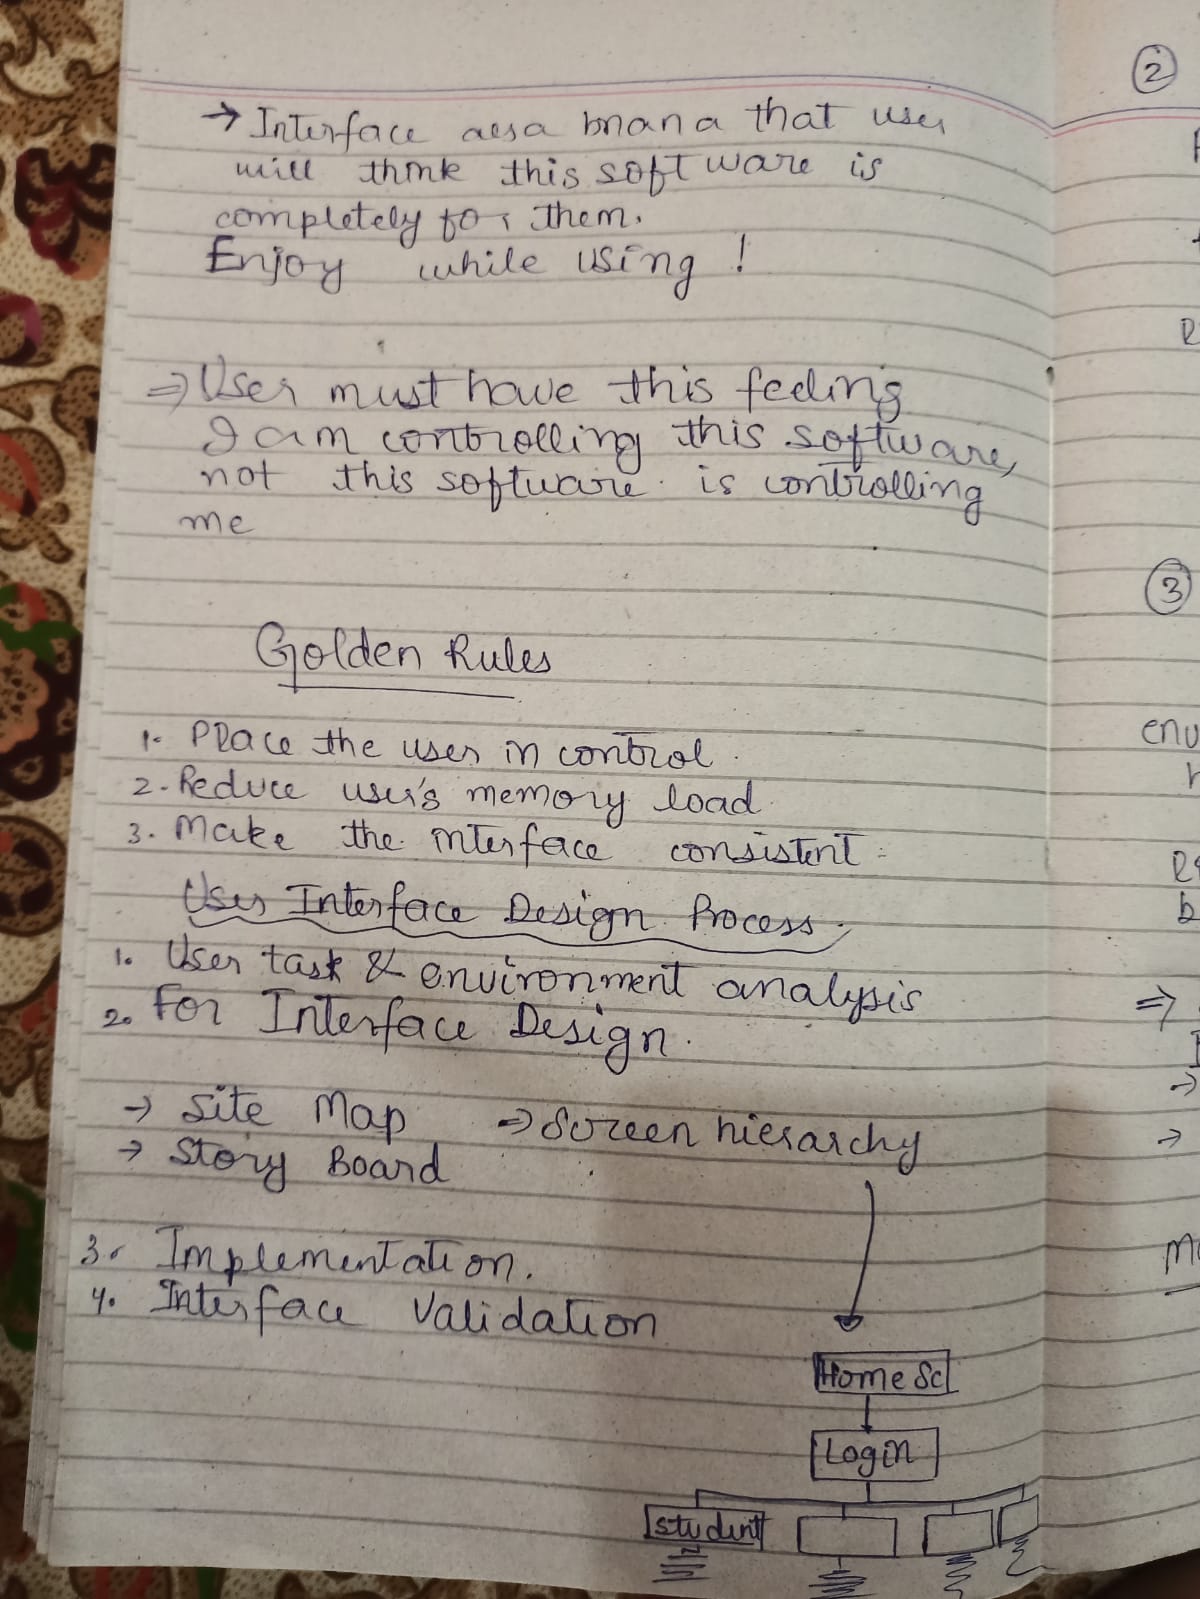 → Interface aesa bnana that user
will think this software is
completely for them.
Enjoy while using !
⇒ User must have this feeling
I am controlling this software,
not this software is controlling
me
Golden Rules
1. Place the user in control.
2. Reduce user's memory load.
3. Make the interface consistent.
User Interface Design Process.
1. User task & environment analysis
2. For Interface Design.
→ Site Map ⇒ Screen hierarchy
→ Story Board
3. Implementation.
4. Interface Validation
Home Sc
Login
Student
②
③